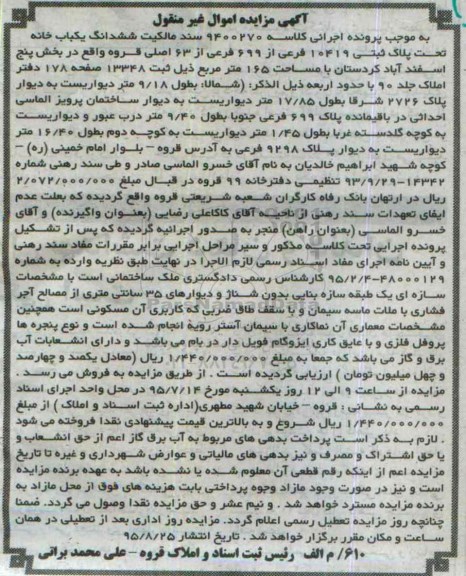 آگهی مزایده اموال غیر منقول
به موجب پرونده اجرائی کلاسه ۹۴۰۰۲۷۰ سند مالکیت ششدانگ یکباب خانه
تحت پلاک ثبتی ۱۰۴۱۹ فرعی از ۶۹۹ فرعی از ۶۳ اصلی قروه واقع در بخش پنج
اسفند آباد کردستان با مساحت ۱۶۵ متر مربع ذیل ثبت ۱۳۳۴۸ صفحه ۱۷۸ دفتر
املاک جلد ۹۰ با حدود اربعه ذیل الذکر: (شمالا: بطول ۹/۱۸ متر دیواریست به دیوار
پلاک ۲۷۲۶ شرقا بطول ۱۷/۸۵ متر دیواریست به دیوار ساختمان پرویز الماسی
احداثی در باقیمانده پلاک ۶۹۹ فرعی جنوبا بطول ۹/۴۰ متر درب عبور و دیواریست
به کوچه گلدسته غربا بطول ۱/۴۵ متر دیواریست به کوچه دوم بطول ۱۶/۴۰ متر
دیواریست به دیوار پلاک ۹۲۹۸ فرعی به آدرس قروه - بلوار امام خمینی (ره) -
کوچه شهید ابراهیم خالدیان به نام آقای خسرو الماسی صادر و طی سند رهنی شماره
۱۴۳۴۲-۹۳/۶/۲۹ تنظیمی دفترخانه ۹۹ قروه در قبال مبلغ ۲/۰۷۲/۰۰۰/۰۰۰
ریال در ارتهان بانک رفاه کارگران شعبه شریعتی قروه واقع گردیده که بعلت عدم
ایفای تعهدات سند رهنی از ناحیه آقای کاکاعلی رضایی (بعنوان واگیرنده) و آقای
خسرو الماسی (بعنوان راهن) منجر به صدور اجرائیه گردیده که پس از تشکیل
پرونده اجرایی تحت کلاسه مذکور و سیر مراحل اجرایی برابر مقررات مفاد سند رهنی
و آیین نامه اجرای مفاد اسناد رسمی لازم الاجرا در نهایت طبق نظریه وارده به شماره
۹۵/۲/۴-۴۸۰۰۰۱۲۹ کارشناس رسمی دادگستری ملک ساختمانی است با مشخصات
سازه ای یک طبقه سازه بنایی بدون شناژ و دیوارهای ۳۵ سانتی متری از مصالح آجر
فشاری با ملات ماسه سیمان و با سقف طاق ضربی که کاربری آن مسکونی است همچنین
مشخصات معماری آن نماکاری با سیمان آستر رویه انجام شده است و نوع پنجره ها
پروفل فلزی و با عایق کاری ایزوگام فویل دار در بام می باشد و دارای انشعابات آب
برق و گاز می باشد که جمعا به مبلغ ۱/۴۴۰/۰۰۰/۰۰۰ ریال (معادل یکصد و چهارصد
و چهل میلیون تومان ) ارزیابی گردیده است . از طریق مزایده به فروش می رسد .
مزایده از ساعت ۹ الی ۱۲ روز یکشنبه مورخ ۹۵/۷/۱۴ در محل واحد اجرای اسناد
رسمی به نشانی : قروه - خیابان شهید مطهری(اداره ثبت اسناد و املاک ) از مبلغ
۱/۴۴۰/۰۰۰/۰۰۰ ریال شروع و به بالاترین قیمت پیشنهادی نقدا فروخته می شود
. لازم به ذکر است پرداخت بدهی های مربوط به آب برق گاز اعم از حق انشعاب و
یا حق اشتراک و مصرف و نیز بدهی های مالیاتی و عوارض شهرداری و غیره تا تاریخ
مزایده اعم از اینکه رقم قطعی آن معلوم شده یا نشده باشد به عهده برنده مزایده
است و نیز در صورت وجود مازاد وجوه پرداختی بابت هزینه های فوق از محل مازاد به
برنده مزایده مسترد خواهد شد . و نیم عشر و حق مزایده نقدا وصول می گردد. ضمنا
چنانچه روز مزایده تعطیل رسمی اعلام گردد، مزایده روز اداری بعد از تعطیلی در همان
ساعت و مکان مقرر برگزار خواهد شد . تاریخ انتشار ۹۵/۸/۲۵
۶۱۰/ م الف رئیس ثبت اسناد و املاک قروه - علی محمد براتی